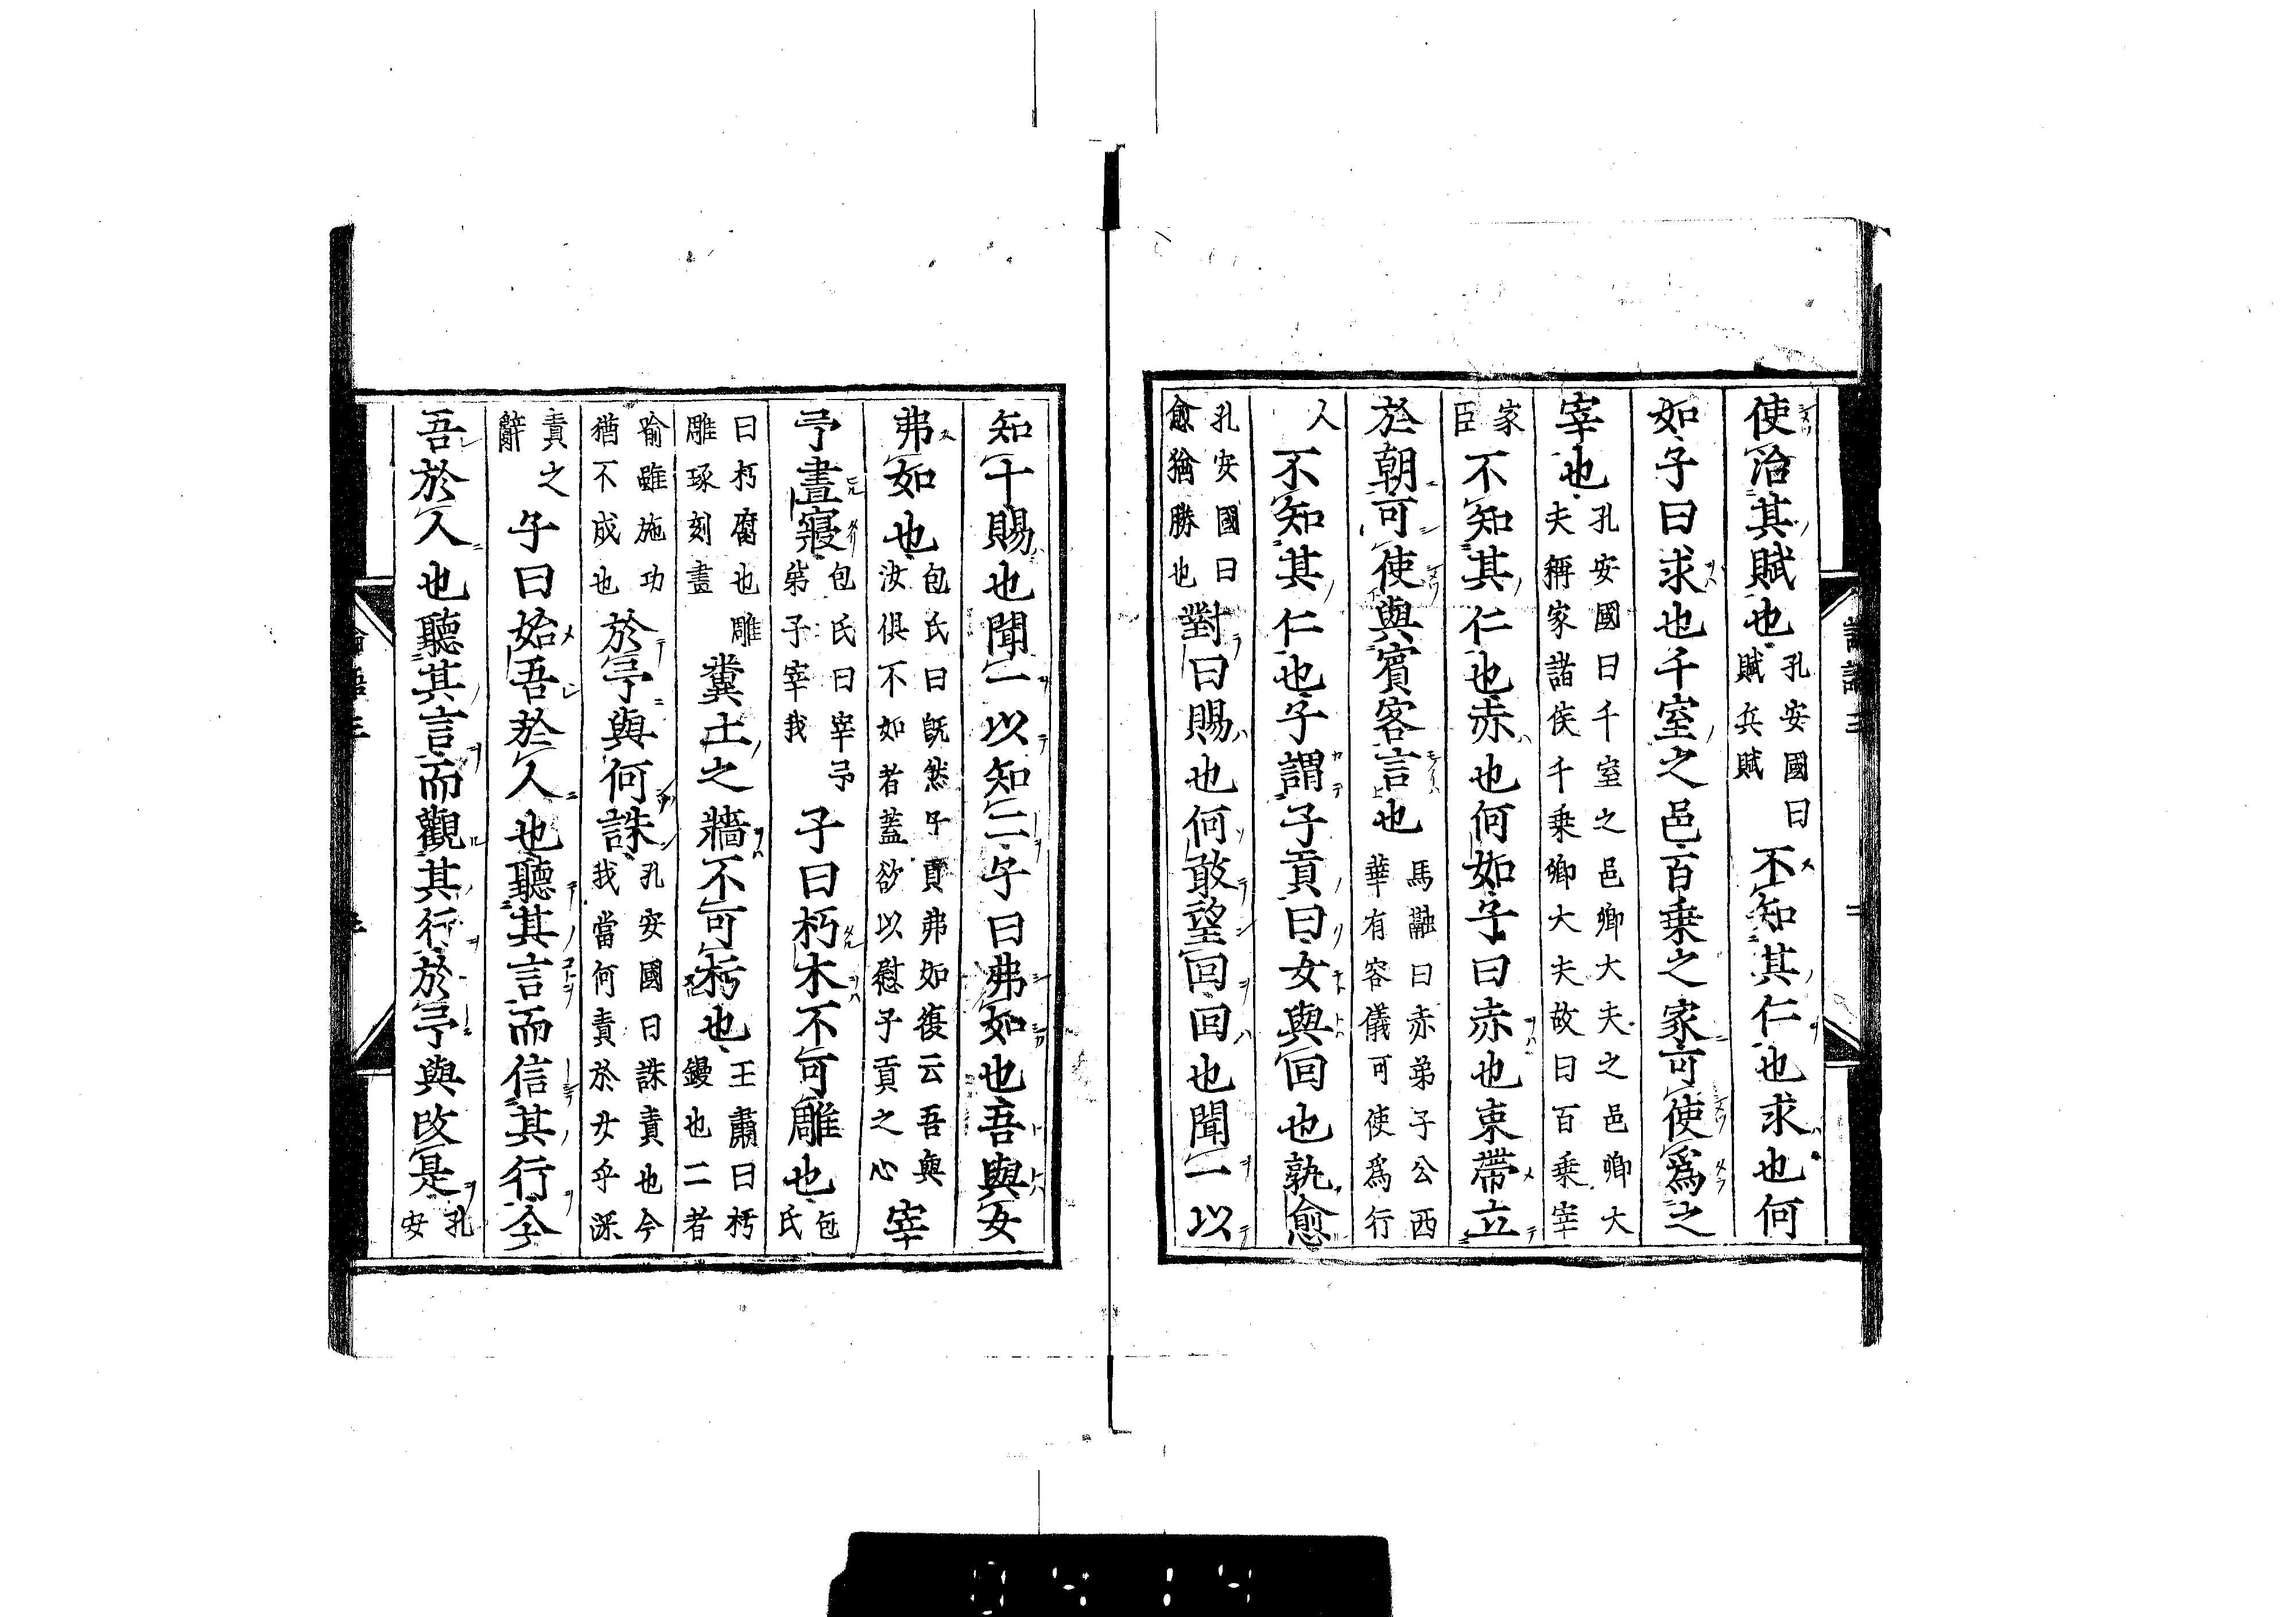 使治其賦也孔安國曰賦兵賦不知其仁也求也何
如子曰求也千室之邑百乗之家可使爲之
宰也孔安國曰千室之邑卿大夫之邑卿大夫稱家諸侯千乗卿大夫故曰百乗宰
家臣不知其仁也赤也何如子曰赤也束帶立
於朝可使與賓客言也馬融曰赤弟子公西華有容儀可使爲行
人不知其仁也子謂子貢曰女與回也孰愈
孔安國曰愈猶勝也對曰賜也何敢望回回也聞一以
知十賜也聞一以知二子曰弗如也吾與女
弗如也包氏曰既然子貢弗如復云吾與汝俱不如者蓋欲以慰子貢之心宰
予晝寢包氏曰宰予弟子宰我子曰朽木不可雕也包氏
曰朽腐也雕雕琢刻畫糞土之牆不可杇也王肅曰杇鏝也二者
喻雖施功猶不成也於予與何誅孔安國曰誅責也今我當何責於女乎深
責之辭子曰始吾於人也聽其言而信其行今
吾於人也聽其言而觀其行於予與改是孔安